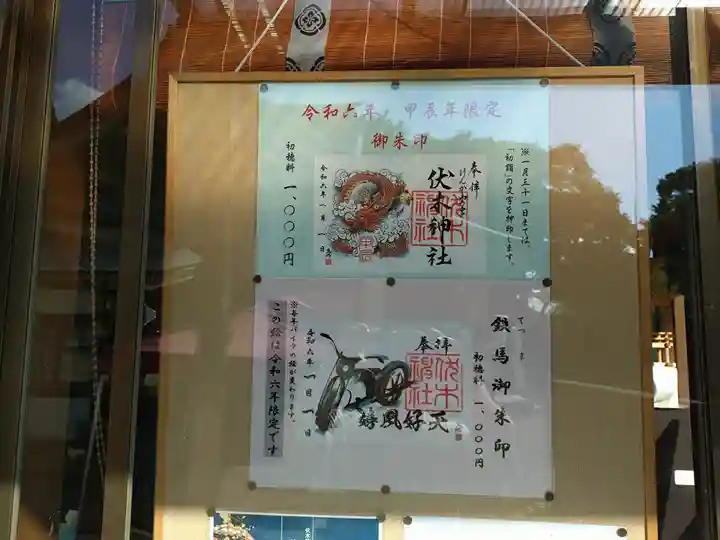 令和六年 甲辰年限定
御朱印
※一月三十一日までは、
「初詣」の文字を押印します。
奉拝
けんかやま
伏木神社
伏木
神社
令和六年 一月 一日
初穂料 一、〇〇〇円
てつ ま
鉄馬御朱印
初穂料 一、〇〇〇円
奉拝
伏木
神社
天好風
令和六年 一月 一日
※毎年バイクの絵が変わります。
この絵は令和六年限定です